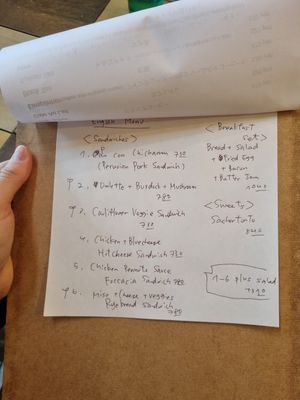 English Menu
<Sandwiches>
1. Pan con Chicharron 750
(Peruvian Pork Sandwich)
2. Omlette + Burdock + Mushroom
780
3. Cauliflower Veggie Sandwich
750
4. Chicken + Bluecheese
Hotcheese Sandwich 780
5. Chicken Peanuts Sauce
Foccasia Sandwich 780
6. Miso + Cheese + Veggies
Ryebread Sandwich
780
<Breakfast
set>
Bread + Salad
+ Fried Egg
+ Bacon
+ Butter Jam
<Sweets>
Sachertorte
1~6 plus salad